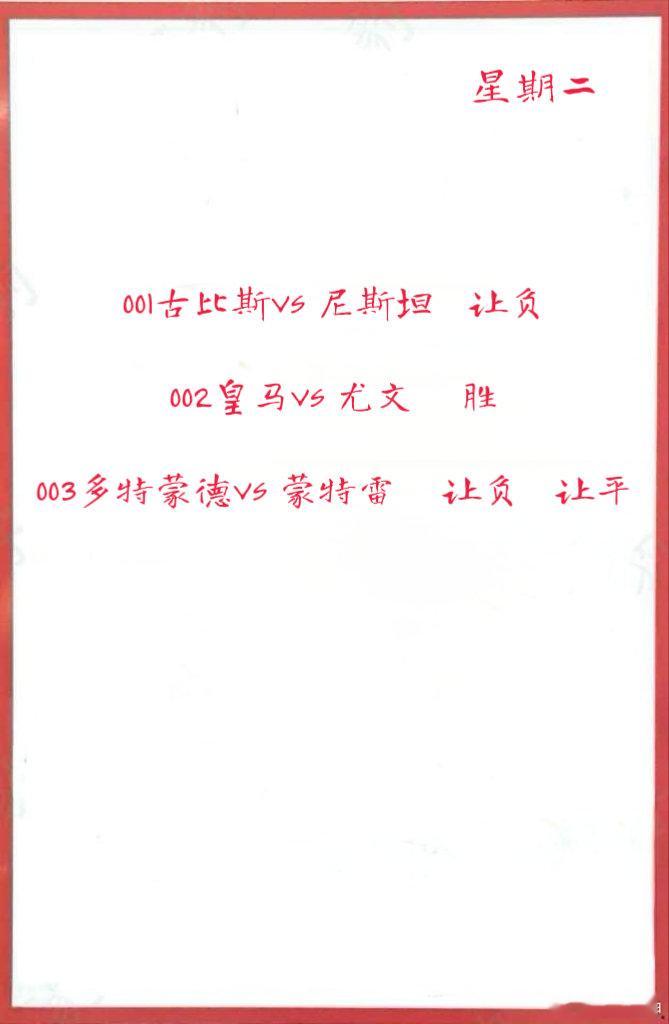 星期二
001古比斯vs 尼斯坦 让负
002皇马vs 尤文 胜
003多特蒙德vs 蒙特雷 让负 让平